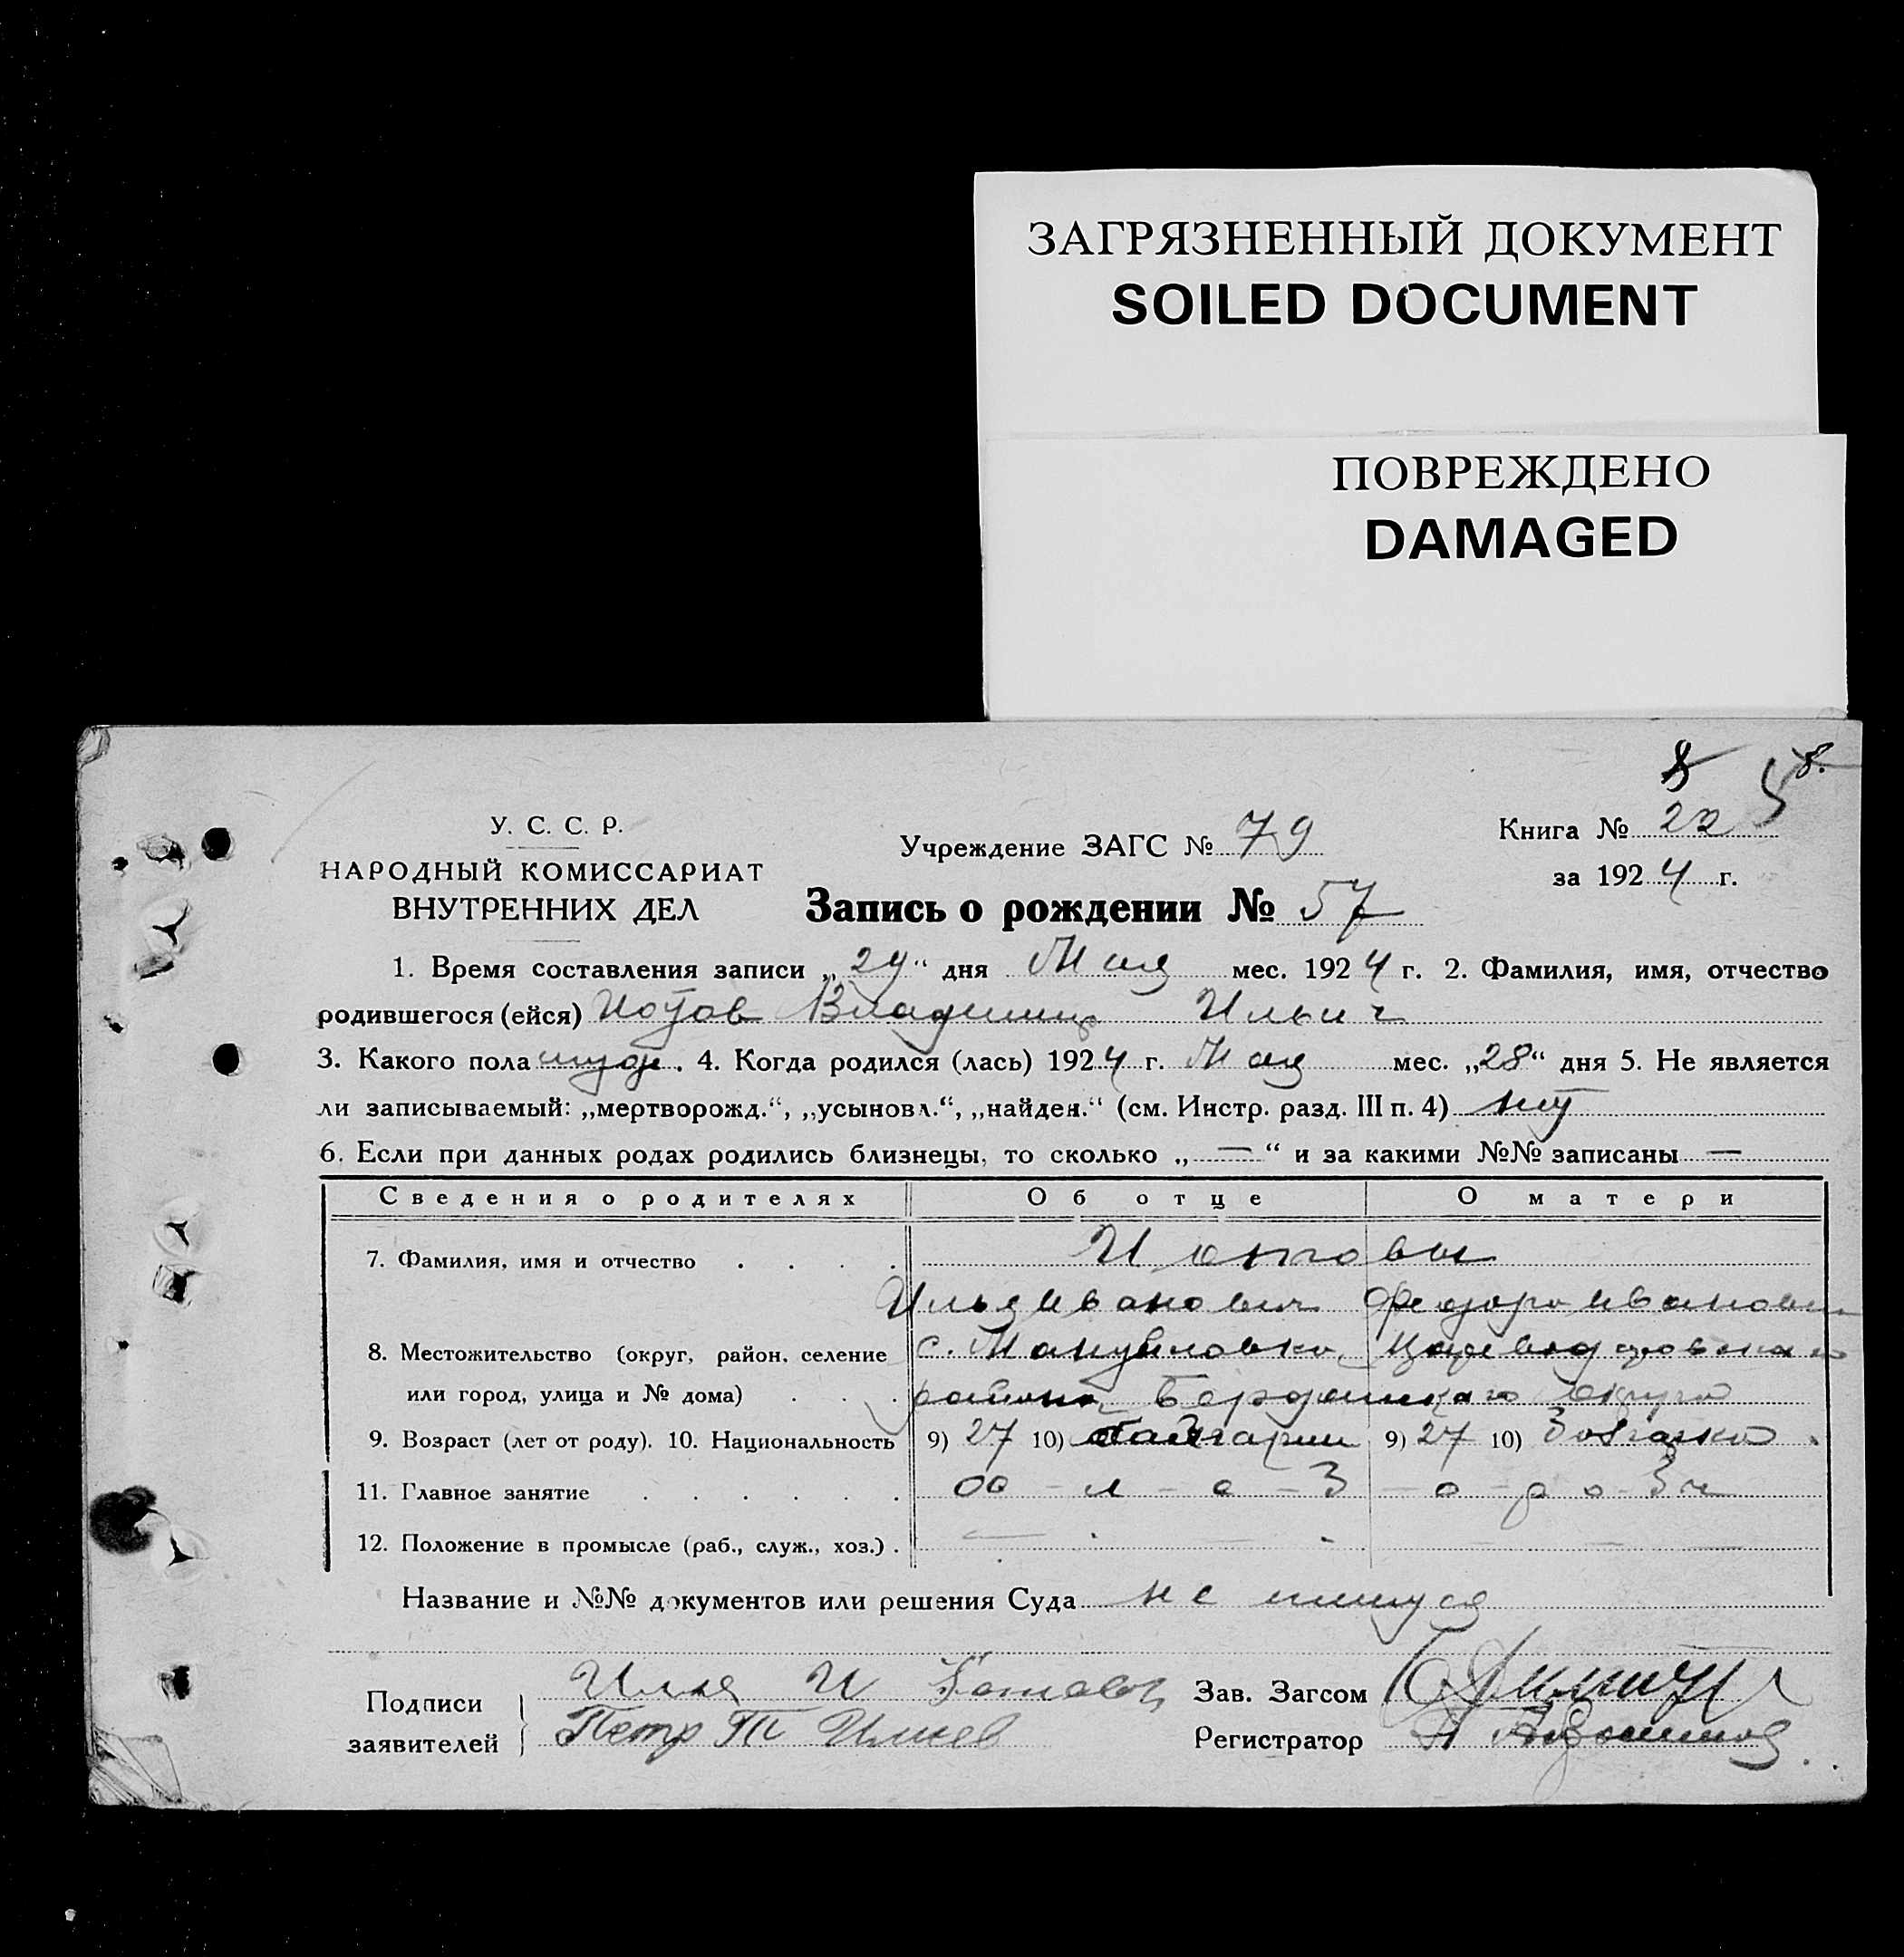 ЗАГРЯЗНЕННЫЙ ДОКУМЕНТ
SOILED DOCUMENT
ПОВРЕЖДЕНО
DAMAGED
8.
У. С. С. Р.
НАРОДНЫЙ КОМИССАРИАТ
ВНУТРЕННИХ ДЕЛ
Учреждение ЗАГС № 79
Книга № 22
за 1924 г.
Запись о рождении № 57
1. Время составления записи „29“ дня Мая мес. 1924 г. 2. Фамилия, имя, отчество
родившегося (ейся) Владимир Ильич
3. Какого пола муж. 4. Когда родился (лась) 1924 г. Мая мес. „28“ дня 5. Не является
ли записываемый: „мертворожд.“, „усыновл.“, „найден.“ (см. Инстр. разд. III п. 4) нет
6. Если при данных родах родились близнецы, то сколько „ — “ и за какими №№ записаны —
Сведения о родителях Об отце О матери
7. Фамилия, имя и отчество
Илья Иванович Федора Ивановна
8. Местожительство (округ, район, селение с. Мануйловка
или город, улица и № дома) района Бердянского округа
9. Возраст (лет от роду). 10. Национальность 9) 27 10) 9) 27 10)
11. Главное занятие
12. Положение в промысле (раб., служ., хоз.) . — —
Название и №№ документов или решения Суда не имеуся
Подписи Илья И Зав. Загсом
заявителей Петр Т Илиев Регистратор